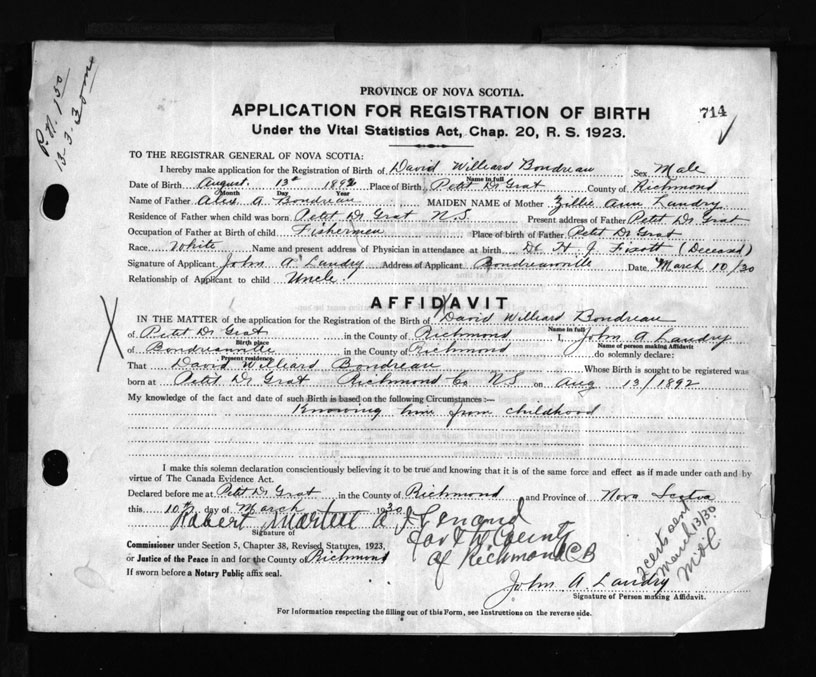 P.N. 1.50
13-3-30
PROVINCE OF NOVA SCOTIA.
APPLICATION FOR REGISTRATION OF BIRTH
714
Under the Vital Statistics Act, Chap. 20, R. S. 1923.
TO THE REGISTRAR GENERAL OF NOVA SCOTIA:
I hereby make application for the Registration of Birth of David Williard Bondreau Sex Male
Name in full
Date of Birth August 13th 1892 Place of Birth Petit De Grat County of Richmond
Month Day Year
Name of Father A Bondreau MAIDEN NAME of Mother Zillie Ann Landry
Residence of Father when child was born Petit De Grat N.S Present address of Father Petit De Grat
Occupation of Father at Birth of child Fishermen Place of birth of Father Petit De Grat
Race White Name and present address of Physician in attendance at birth Dr H J Fixott (Deceasd)
Signature of Applicant John A Landry Address of Applicant Bondreauville Date March 10/30
Relationship of Applicant to child Uncle
AFFIDAVIT
IN THE MATTER of the application for the Registration of the Birth of David Williard Bondreau
Name in full
of Petit De Grat in the County of Richmond I, John A Landry
Birth place Name of person making Affidavit
of Bondreauville in the County of Richmond do solemnly declare:
Present residence
That David Williard Bondreau Whose Birth is sought to be registered was
born at Petit De Grat Richmond Co N.S on Aug 13/1892
My knowledge of the fact and date of such Birth is based on the following Circumstances:—
Knowing him from childhood
I make this solemn declaration conscientiously believing it to be true and knowing that it is of the same force and effect as if made under oath and by
virtue of The Canada Evidence Act.
Declared before me at Petit De Grat in the County of Richmond and Province of Nova Scotia
this 10th day of March 1930
Robert Martell
Signature of
Commissioner under Section 5, Chapter 38, Revised Statutes, 1923,
or Justice of the Peace in and for the County of Richmond
If sworn before a Notary Public affix seal.
County
of Richmond CB
certs sent
March 13/30
John A Landry
Signature of Person making Affidavit.
For Information respecting the filling out of this Form, see Instructions on the reverse side.